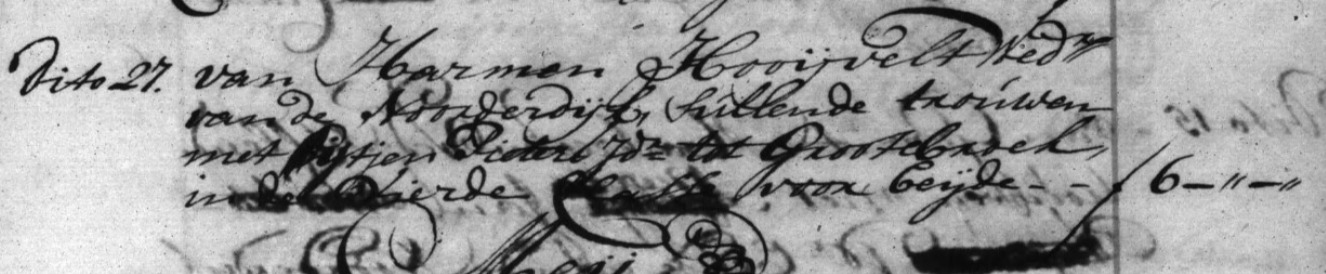 Dito 27. van Harmen Hooijvelt Wedr
van de Noorderdijk, sullende trouwen
met Pieters Jdr tot Grootebroek,
in de vierde Classe voor beijde - - 6-"-"
Meij